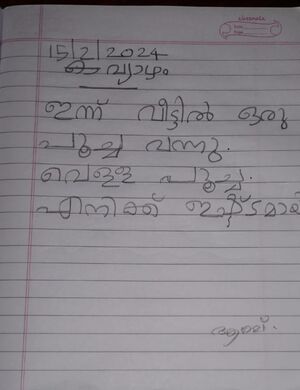 classmate
Date
Page
15/2/2024
വ്യാഴം
ഇന്ന് വീട്ടിൽ ഒരു
പൂച്ച വന്നു.
വെള്ള പൂച്ച.
എനിക്ക് ഇഷ്ടമായ